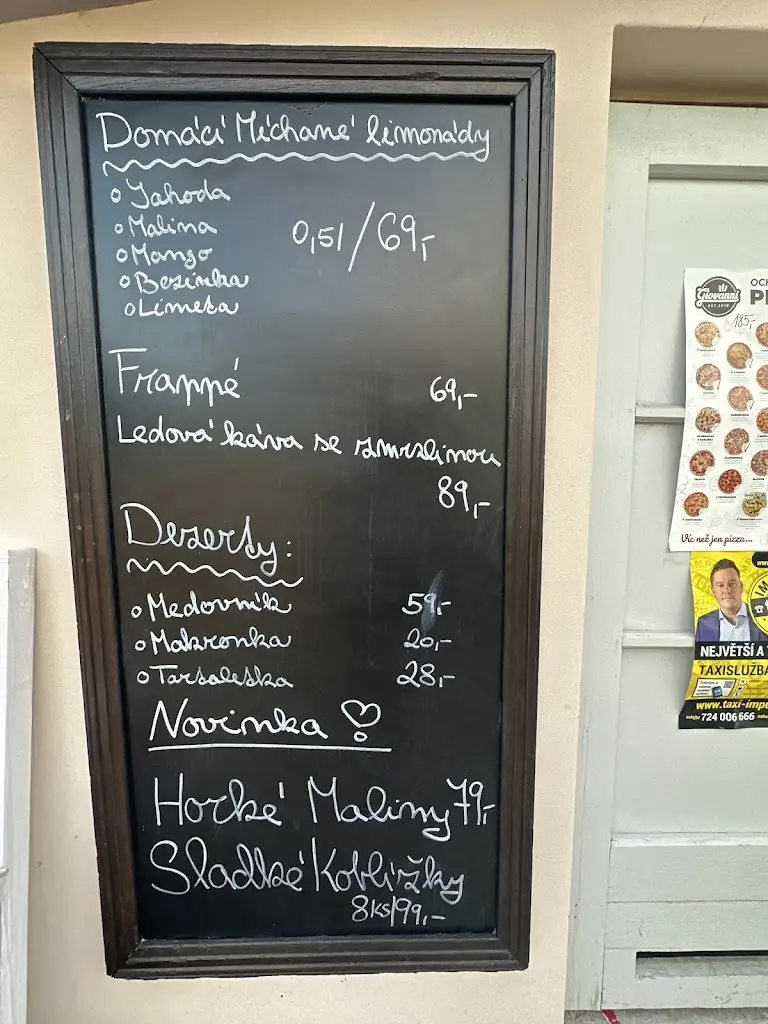 Domácí Míchané limonády
o Jahoda
o Malina
0,5l/69,-
o Mango
o Bezinka
o Limeta
Frappé 69,-
Ledová káva se zmrzlinou
89,-
Dezerty:
o Medovník 59,-
o Makronka 20,-
o Tartaletka 28,-
Novinka
Horké Maliny 79,-
Sladké Koblížky
8ks/99,-
Giovanni
185,-
Víc než jen pizza...
NEJVĚTŠÍ A
TAXISLUŽBA
www.taxi-impu
724 006 666